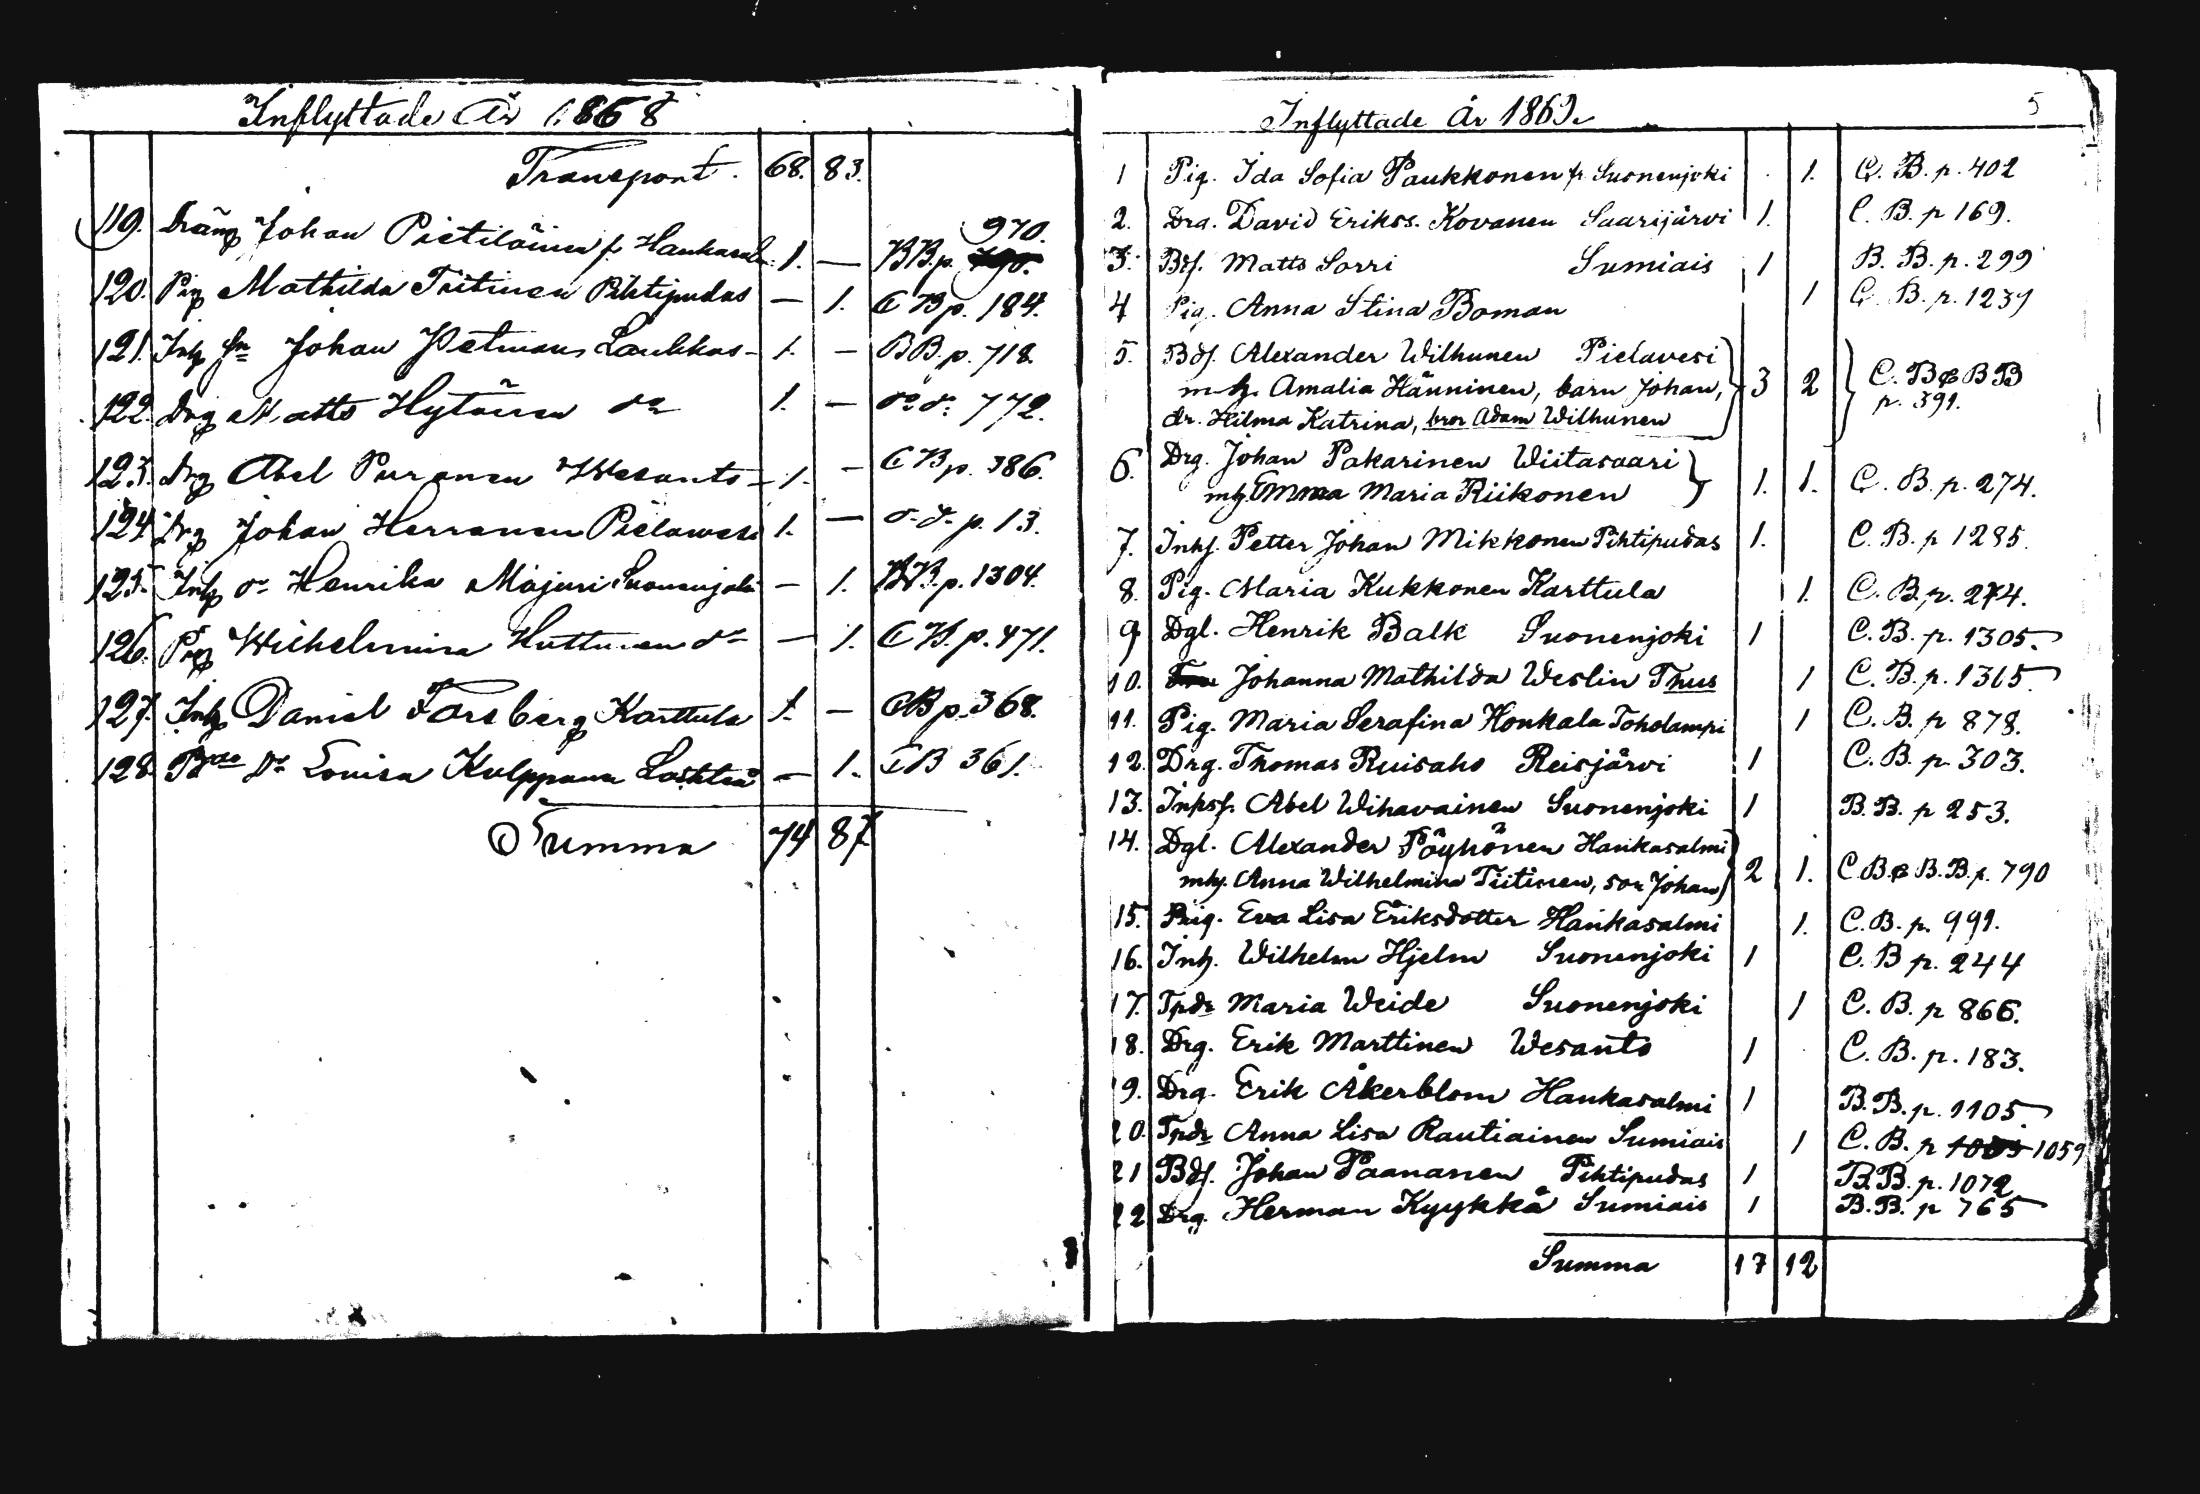 Inflyttade År 1868
Transport. 68. 83.
119. Dräng Johan Pietiläinen fr. Hankasalmi 1. — BB. p. 970.
120. Pig Mathilda Tiitinen Pihtipudas — 1. CB p. 184.
121. Inh sn Johan Petman Laukkas 1. — BB. p. 718.
122. Drg Matts Hytönen do 1. — do do 772.
123. Drg Abel Puranen Wesanto 1. — CB p. 386.
124. Drg Johan Herranen Pielawesi 1. — do do p. 13.
125. Inh dr Henrika Majuri Suonenjoki — 1. BB. p. 1304.
126. Pig Wilhelmina Huttunen do — 1. CB. p. 471.
127. Inh Daniel Forsberg Karttula 1. — CB p. 368.
128. dr Lovisa Kulppana Lochteå — 1. CB 361.
Summa 74 87.
Inflyttade År 1869. 5
1 Pig. Ida Sofia Paukkonen fr. Suonenjoki 1. C. B. p. 402
2. Drg. David Erikss. Kovanen Saarijärvi 1. C. B. p 169.
3. Bdf. Matts Sorri Sumiais 1 B. B. p. 299
4 Pig. Anna Stina Boman 1 C. B. p. 1239
5. Bdf. Alexander Wilhunen Pielavesi
mh. Amalia Hänninen, barn Johan, 3 2 C. B & BB
dr. Hilma Katrina, bror Adam Wilhunen p. 391.
6. Drg. Johan Pakarinen Wiitasaari
mh. Emma Maria Riikonen 1. 1. C. B. p. 274.
7. Inhs. Petter Johan Mikkonen Pihtipudas 1. C. B. p 1285.
8. Pig. Maria Kukkonen Karttula 1. C. B. p. 274.
9 Dgl. Henrik Balk Suonenjoki 1 C. B. p. 1305.
10. Johanna Mathilda Weslin Thus 1 C. B. p. 1365.
11. Pig. Maria Serafina Honkala Toholampi 1 C. B. p 878.
12. Drg. Thomas Ruisaho Reisjärvi 1 C. B. p. 303.
13. Inhsf. Abel Wihavainen Suonenjoki 1 B. B. p 253.
14. Dgl. Alexander Pöyhönen Hankasalmi
mh. Anna Wilhelmina Tiitinen, son Johan 2 1. C. B. & B. B. p. 790
15. Pig. Eva Lisa Eriksdotter Hankasalmi 1. C. B. p. 991.
16. Inh. Wilhelm Hjelm Suonenjoki 1 C. B p. 244
17. Tpdr Maria Weide Suonenjoki 1 C. B. p 866.
18. Drg. Erik Marttinen Wesanto 1 C. B. p. 183.
19. Drg. Erik Åkerblom Hankasalmi 1 B. B. p. 1105
20. Tpdr Anna Lisa Rautiainen Sumiais 1 C. B. p 1059
21 Bdf. Johan Paananen Pihtipudas 1 B. B. p. 1072
22 Drg. Herman Kyykkä Sumiais 1 B. B. p 765
Summa 17 12